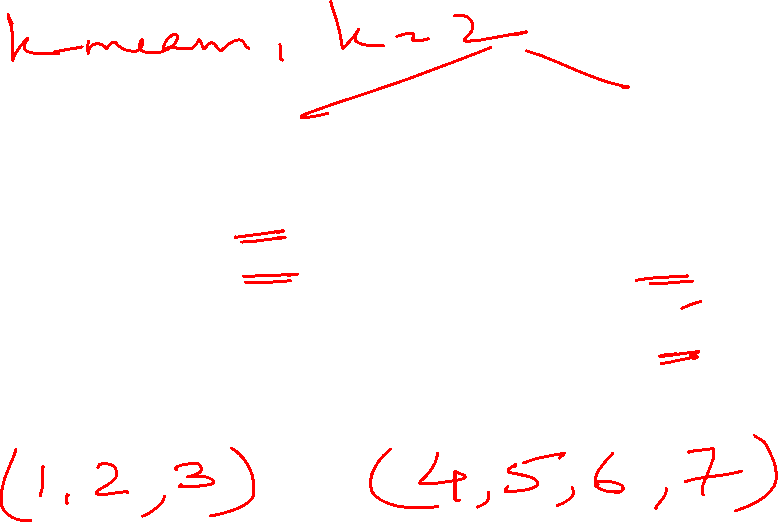 k-mean, k = 2
(1, 2, 3) (4, 5, 6, 7)